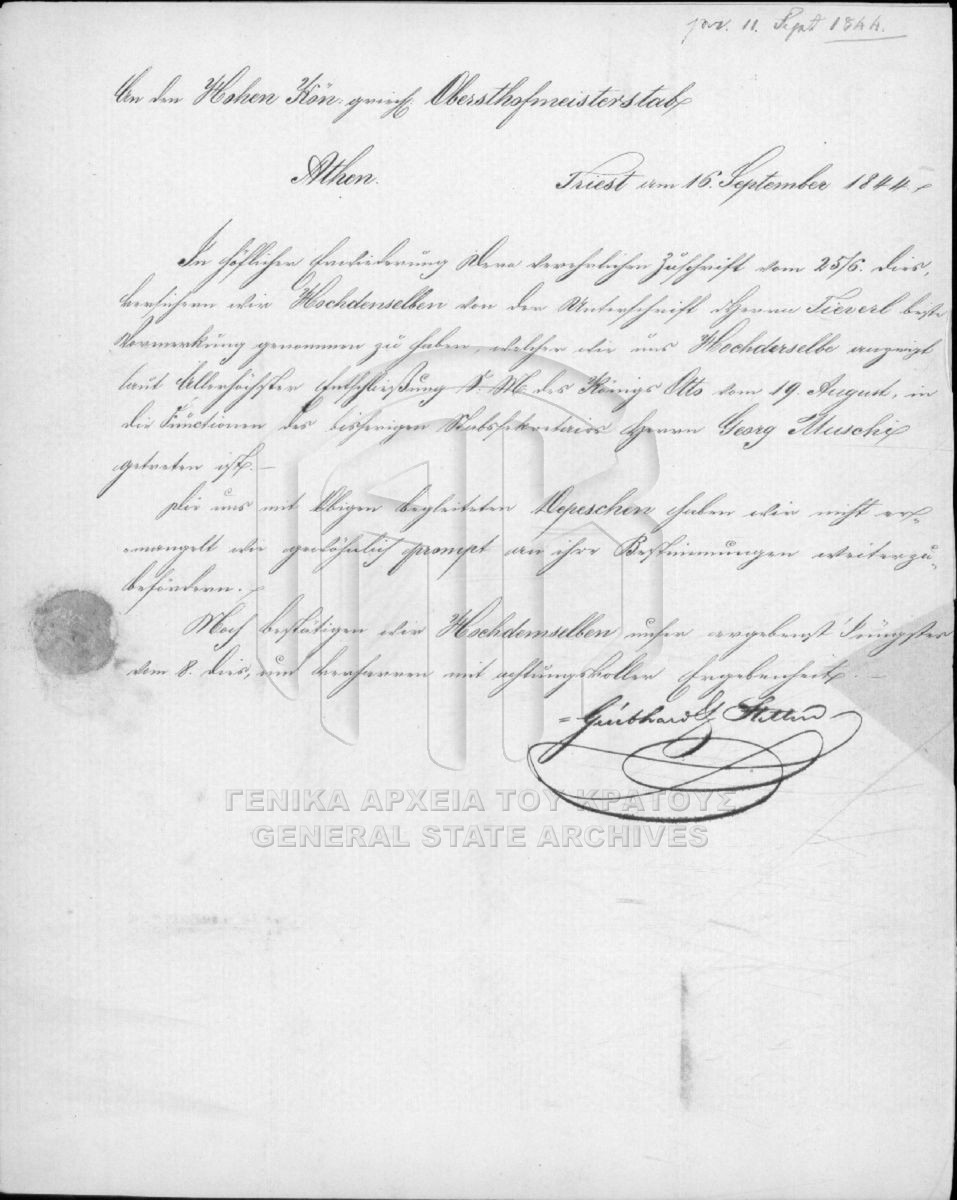 11. Sept 1844.
An den Hohen Kön. griech. Obersthofmeisterstab
Athen.
Triest am 16. September 1844
In höflicher Erwiederung Dero verehrlichen Zuschrift vom 25/6. dies,
versichern wir Hochdenselben von der Unterschrift Herrn beste
Vormerkung genommen zu haben, welcher wie uns Hochderselbe anzeigt
laut Allerhöchster Entschließung S. M. des Königs Otto vom 19 August, in
die Functionen des bisherigen Stabssekretairs Herrn Georg
getreten ist.
Die uns mit Obigen begleiteten Depeschen haben wir nicht er-
mangelt wie gewöhnlich prompt an ihre Bestimmungen weiterzu-
befördern.
Noch bestätigen wir Hochdemselben unser ergebenst Jüngstes
vom 8. dies, und verharren mit achtungsvoller Ergebenheit.
ΓΕΝΙΚΑ ΑΡΧΕΙΑ ΤΟΥ ΚΡΑΤΟΥΣ
GENERAL STATE ARCHIVES